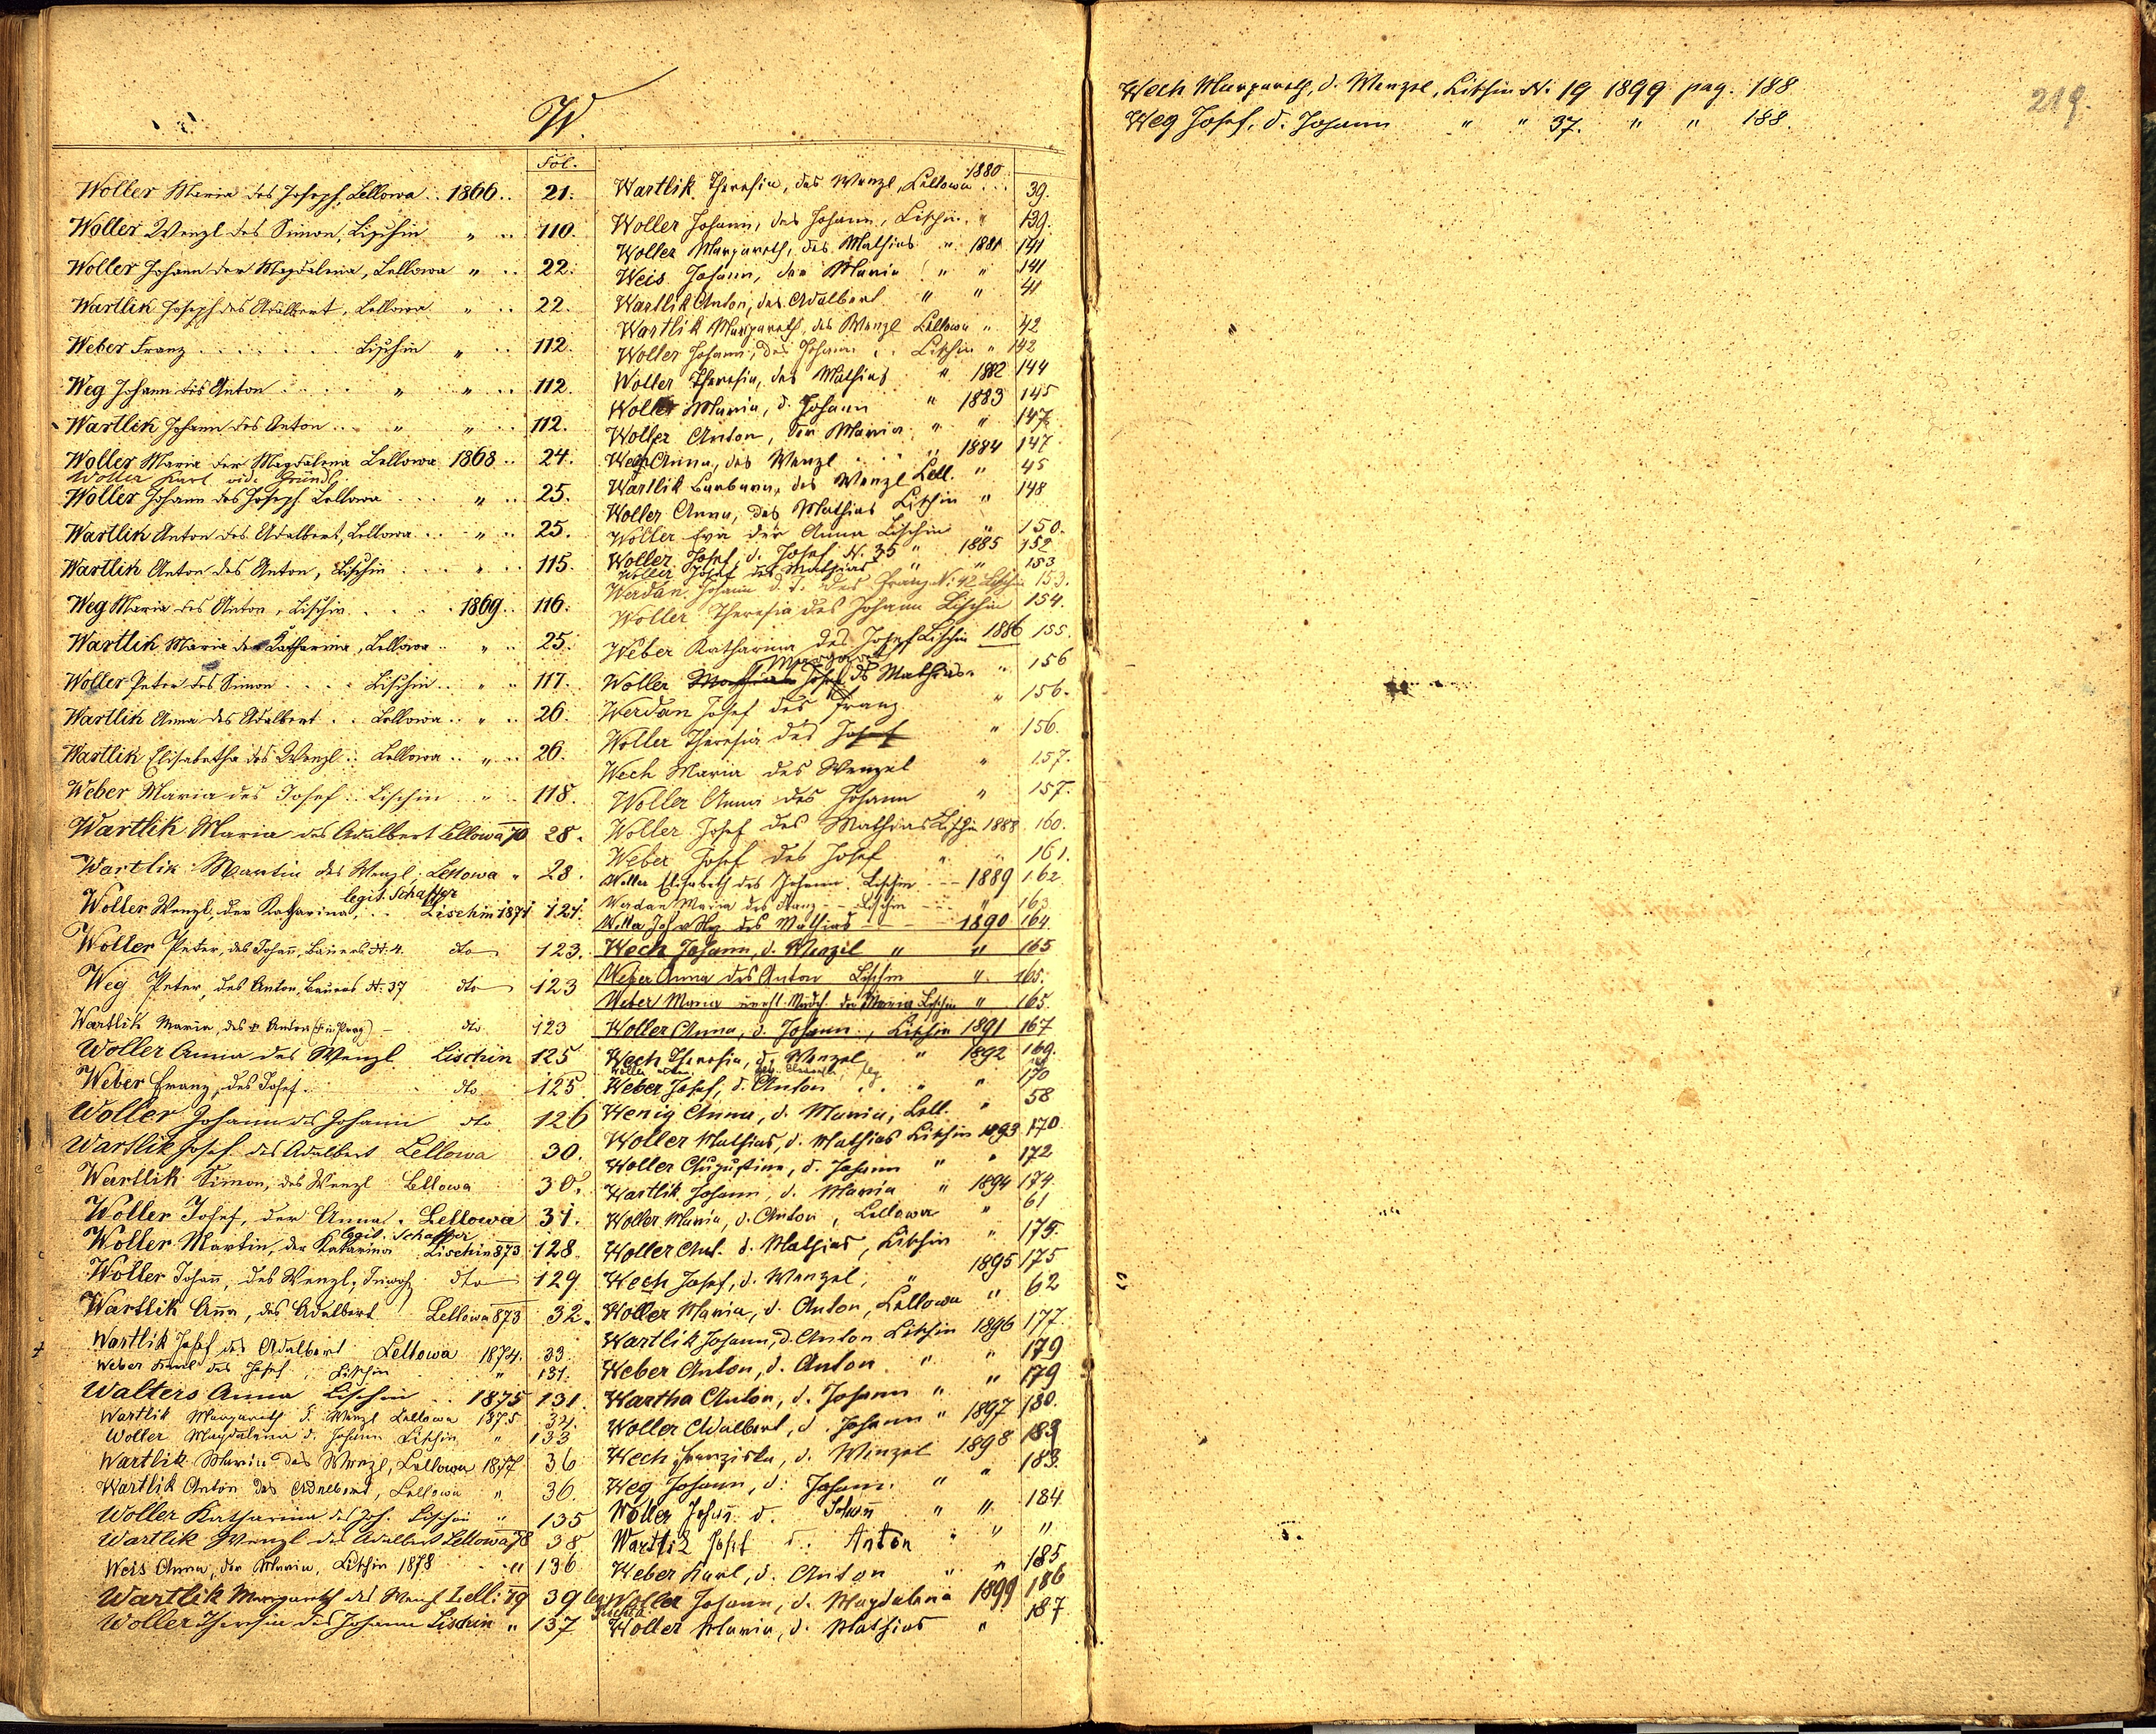 W.
Fol.
Woller Maria des Joseph, Lellowa .. 1866 .. 21.
Woller Wenzl des Simon, Lischin " .. 110.
Woller Johann der Magdalena, Lellowa " .. 22.
Wartlik Joseph des Adalbert, Lellowa " .. 22.
Weber Franz . . . . . . Lischin " .. 112.
Weg Johann des Anton . . . . " " .. 112.
Wartlik Johann des Anton .. " " .. 112.
Woller Maria der Magdalena Lellowa 1868 .. 24.
Woller Karl vide Gründl
Woller Johann des Joseph Lellowa . . . " .. 25.
Wartlik Anton des Adalbert, Lellowa .. " .. 25.
Wartlik Anton des Anton, Lischin . . . " .. 115.
Weg Maria des Anton, Lischin . . . . 1869 .. 116.
Wartlik Maria der Katharina, Lellowa .. " .. 25.
Woller Peter des Simon . . . . Lischin .. " .. 117.
Wartlik Anna des Adalbert . . Lellowa .. " .. 26.
Wartlik Elisabetha des Wenzl .. Lellowa .. " .. 26.
Weber Maria des Josef .. Lischin .. " .. 118.
Wartlik Maria des Adalbert Lellowa 70 28.
Wartlik Martin des Wenzl, Lellowa " 28.
legit. Schaffer
Woller Wenzl, der Katharina, .. Lischin 1871 121.
Woller Peter, des Johañ, Bauers N. 4. dto 123.
Weg Peter, des Anton, Bauers N. 37 dto 123
Wartlik Maria, des Anton (in Prag) - dto 123
Woller Anna des Wenzl Lischin 125
Weber Franz, des Josef . dto 125
Woller Johann des Johann dto 126
Wartlik Josef des Adalbert Lellowa 30.
Wartlik Simon, des Wenzl Lellowa 30.
Woller Josef, der Anna, Lellowa 31.
legit. Schaffer
Woller Martin, der Katarina Lischin 873 128
Woller Johañ, des Wenzl, dto 129
Wartlik Aña, des Adalbert Lellowa 873 32.
Wartlik Josef des Adalbert Lellowa 1874. 33.
Weber Karl des Josef, Lischin " 131.
Walters Anna Lischin .. 1875 131.
Wartlik Margareth d. Wenzl Lellowa 1875 34.
Woller Magdalena d. Johann Lischin " 133
Wartlik Maria des Wenzl, Lellowa 1877 36
Wartlik Anton des Adalbert, Lellowa " 36.
Woller Katharina des Joh. Lischin " 135
Wartlik Wenzl des Adalbert Lellowa 78 38
Weis Anna, der Maria, Lischin 1878 " 136
Wartlik Margareth des Wenzl Lell: 79 39
Woller Theresia des Johann Lischin " 137
Wartlik Theresia, des Wenzl, Lellowa 1880 .. 39.
Woller Johann, des Johann, Lischin . " 139.
Woller Margareth, des Mathias " 1881 141
Weis Johann, der Maria " " 141
Wartlik Anton, des Adalbert " " 41
Wartlik Margareth, des Wenzl Lellowa " 42
Woller Johann, des Johann . . Lischin " 142
Woller Theresia, des Mathias " 1882 144
Woller Maria, d. Johann " 1883 145
Woller Anton, der Maria " " 147
Weg Anna, des Wenzl . . . " 1884 147
Wartlik Barbara, des Wenzl Lell. " 45
Woller Anna, des Mathias Lischin " 148
Woller Eva der Anna Lischin " 150.
Woller Josef, d. Josef N. 35 " 1885 152
Woller Josef des Mathias " " 153
Werdan Johann d. J. des Franz N: 42 Lischin 153.
Woller Theresia des Johann Lischin 154.
Weber Katharina des Josef Lischin 1886 155.
Margareth
Woller Josef des Mathias " 156
Werdan Josef des Franz " 156.
Woller Theresia des Josef " 156.
Wech Maria des Wenzel " 157.
Woller Anna des Johann " 157.
Woller Josef des Mathias Lischin 1888 160.
Weber Josef des Josef " " 161.
Woller Elisabeth des Johann. Lischin - - 1889 162
Werdan Maria des Franz - - Lischin - - " 163
Woller des Mathias - - - 1890 164
Wech Johann, d. Wenzel " " 165
Weber Anna des Anton Lischin " 165.
Weber Maria der Maria Lischin " 165.
Woller Anna, d. Johann, Lischin 1891 167
Wech Theresia, d. Wenzel " 1892 169.
Weber Josef, d. Anton . . " " 170
Wenig Anna, d. Maria, Lell. " 58
Woller Mathias, d. Mathias Lischin 1893 170.
Woller Augustine, d. Johann " " 172
Wartlik Johann, d. Maria " 1894 174.
Woller Maria, d. Anton, Lellowa " 61
Woller Ant. d. Mathias, Lischin " 175.
Wech Josef, d. Wenzel, " 1895 175
Woller Maria, d. Anton, Lellowa " 62
Wartlik Johann, d. Anton Lischin 1896 177.
Weber Anton, d. Anton " " 179
Wartha Anton, d. Johann " " 179
Woller Adalbert, d. Johann " 1897 180.
Wech Franziska, d. Wenzel 1898 183
Weg Johann, d. Johann. " " 183.
Woller Johañ d. Johañ " " 184.
Wartlik Josef d. Anton " " "
Weber Karl, d. Anton " " 185
Woller Johann, d. Magdalena 1899 186
Woller Maria, d. Mathias " 187
Wech Margareth, d. Wenzel, Lischin N. 19 1899 pag. 188
Weg Josef, d. Johann " " 37. " " 188.
219.